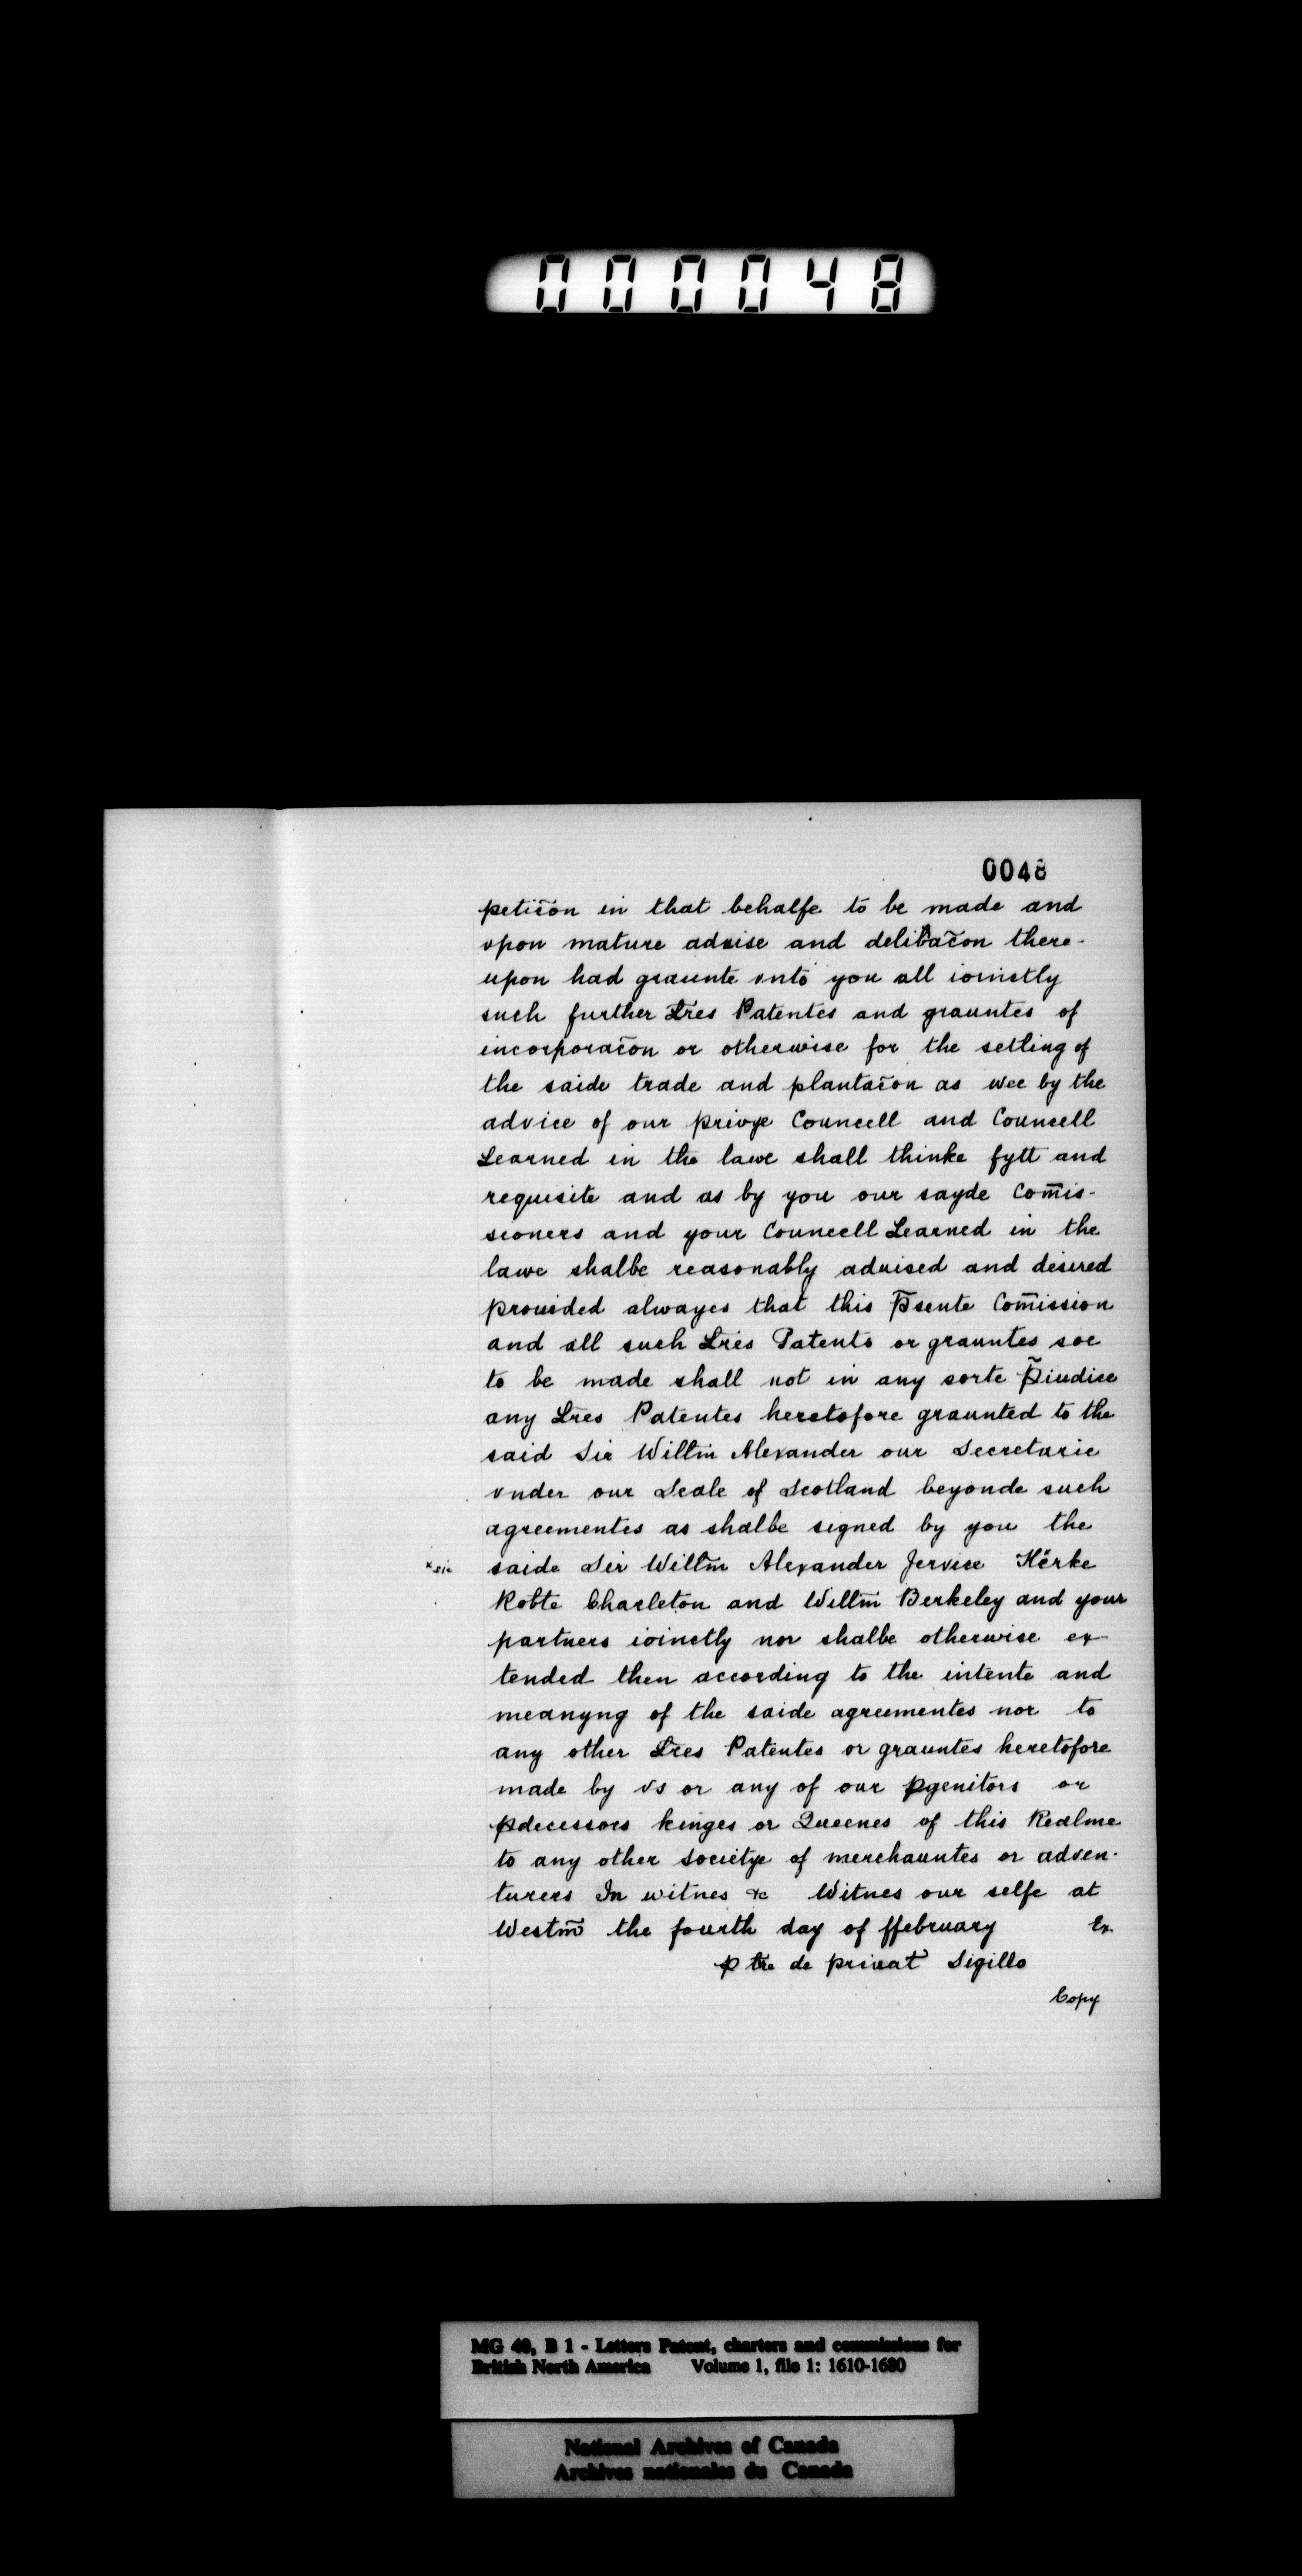 000048
0048
petic̄on in that behalfe to be made and
vpon mature aduise and delib̄ac̄on there-
upon had graunte vnto you all ioinctly
such further Lr̄es Patentes and grauntes of
incorporac̄on or otherwise for the setling of
the saide trade and plantac̄on as wee by the
advice of our privye Councell and Councell
Learned in the lawe shall thinke fytt and
requisite and as by you our sayde Com̄is-
sioners and your Councell Learned in the
lawe shalbe reasonably aduised and desired
prouided alwayes that this p̄sente Com̄ission
and all such Lr̄es Patents or grauntes soe
to be made shall not in any sorte p̃iudice
any Lr̄es Patentes heretofore graunted to the
said Sir Willm̄ Alexander our Secretarie
vnder our Seale of Scotland beyonde such
agreementes as shalbe signed by you the
x sic saide Sir Willm̄ Alexander Jervice Kẋrke
Robte Charleton and Willm̄ Berkeley and your
partners ioinctly nor shalbe otherwise ex-
tended then according to the intente and
meanyng of the saide agreementes nor to
any other Lr̄es Patentes or grauntes heretofore
made by vs or any of our ꝓgenitors or
p̱decessors kinges or Queenes of this Realme
to any other societye of merchauntes or adven-
turers In witnes &c Witnes our selfe at
Westm̄ the fourth day of ffebruary Ex
ꝑ br̄e de privat Sigillo
Copy
MG 40, B 1 - Letters Patent, charters and commissions for
British North America Volume 1, file 1: 1610-1680
National Archives of Canada
Archives nationales du Canada